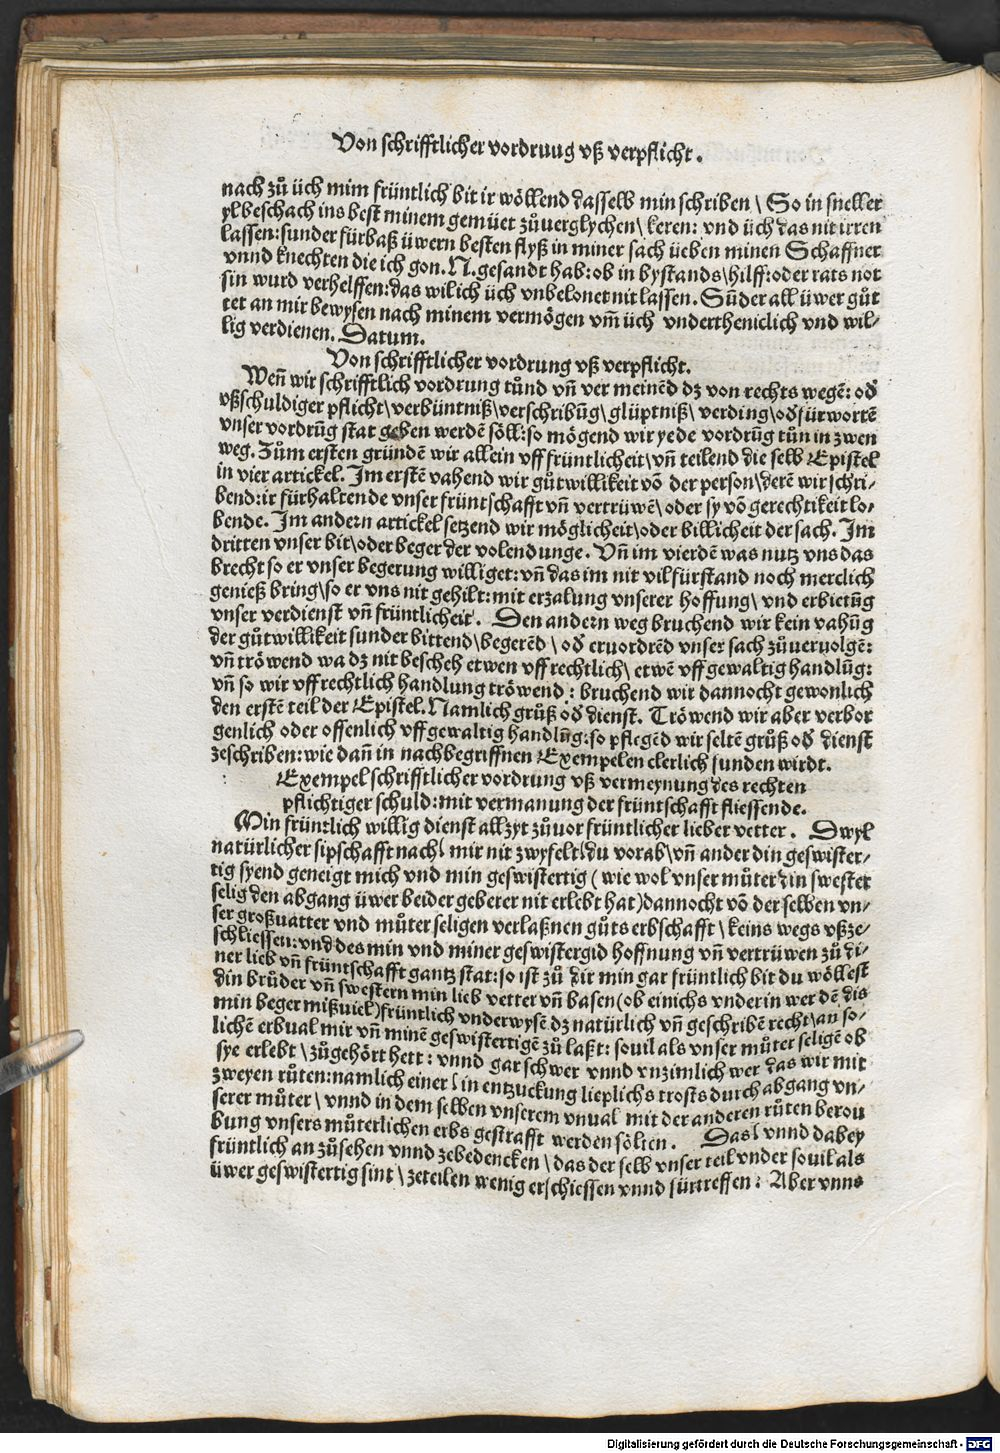 Von schrifftlicher vordruug vß verpflicht.
nach zů üch mim früntlich bit ir wöllend dasselb min schriben \ So in sneller
yl beschach ins best minem gemüet zů verglychen \ keren: vnd üch das nit irren
lassen: sunder fürbaß üwern besten flyß in miner sach üeben minen Schaffner
vnnd knechten die ich gon. N. gesandt hab: ob in bystands \ hilff: oder rats not
sin wurd verhelffen: das wil ich üch vnbelonet nit lassen. Sũder all üwer gůt
tet an mir bewysen nach minem vermögen vm̃ üch vnderthenicklich vnd wil-
lig verdienen. Datum.
Von schrifftlicher vordrung vß verpflicht.
Wen̄ wir schrifftlich vordrung tůnd vn̄ ver meinēd dz von rechts wegē: od̕
vßschuldiger pflicht \ verbüntniß \ verschribūg \ glüptniß \ verding \ od̕ fürwortē
vnser vordrūg stat geben werdē söll: so mögend wir yede vordrūg tůn in zwen
weg. Zům ersten gründē wir allein vff früntlicheit \ vn̄ teilend die selb Epistel
in vier artickel. Im erstē vahend wir gůtwillikeit vō der person \ derē wir schri-
bend: ir fürhaltende vnser früntschafft vn̄ vertrüwē \ oder sy vō gerechtikeit lo-
bende. Im andern artickel setzend wir möglicheit \ oder billicheit der sach. Im
dritten vnser bit \ oder beger der volendunge. Vn̄ im vierdē was nutz vns das
brecht so er vnser begerung williget: vn̄ das im nit vil fürstand noch merclich
genieß bring \ so er vns nit gehilt: mit erzalung vnserer hoffung \ vnd erbietūg
vnser verdienst vn̄ früntlicheit. Den andern weg bruchend wir kein vahūg
der gůtwillikeit sunder bittend \ begerēd \ od̕ ervordrēd vnser sach zů ueruolgē:
vn̄ tröwend wa dz nit bescheh etwen vff rechtlich \ etwē vff gewaltig handlūg:
vn̄ so wir vff rechtlich handlung tröwend: bruchend wir dannocht gewonlich
den erstē teil der Epistel. Namlich grůß od̕ dienst. Tröwend wir aber verbor
genlich oder offenlich vff gewaltig handlūg: so pflegēd wir seltē grůß od̕ dienst
zeschriben: wie dan̄ in nachbegriffnen Exempelen clerlich funden wirdt.
Exempel schrifftlicher vordrung vß vermeynung des rechten
pflichtiger schuld: mit vermanung der früntschafft fliessende.
Min früntlich willig dienst allzyt zůuor früntlicher lieber vetter. Dwyl
natürlicher sipschafft nach \ mir nit zwyfelt \ du vorab \ vn̄ ander din geswister-
tig syend geneigt mich vnd min geswistertig (wie wol vnser můter din swester
selig den abgang üwer beider geberer nit erlebt hat) dannocht vō der selben vn-
ser großuatter vnd můter seligen verlaßnen gůts erbschafft \ keins wegs vßze-
schliessen: vnd des min vnd miner geswistergid hoffnung vn̄ vertrüwen zů di-
ner lieb vn̄ früntschafft gantz stat: so ist zů dir min gar früntlich bit du wöllest
din brůder vn̄ swestern min lieb vetter vn̄ basen (ob einichs vnder in wer dē dis
min beger mißuiel) früntlich vnderwysē dz natürlich vn̄ geschribē recht \ an so-
lichē erbual mir vn̄ minē geswistertigē zů laßt: souil als vnser můter seligē ob
sye erlebt \ zůgehört hett: vnnd gar schwer vnnd vnzimlich wer das wir mit
zweyen růten: namlich einer \ in entzuckung lieplichs trosts durch abgang vn-
serer můter \ vnnd in dem selben vnserem vnual mit der anderen růten berou
bung vnsers můterlichen erbs gestrafft werden sölten. Das \ vnnd dabey
früntlich an zůsehen vnnd zebedencken \ das der selb vnser teil vnder souil als
üwer geswistertig sint \ zeteilen wenig erschiessen vnnd fürtreffen: Aber vnns
Digitalisierung gefördert durch die Deutsche Forschungsgemeinschaft - DFG